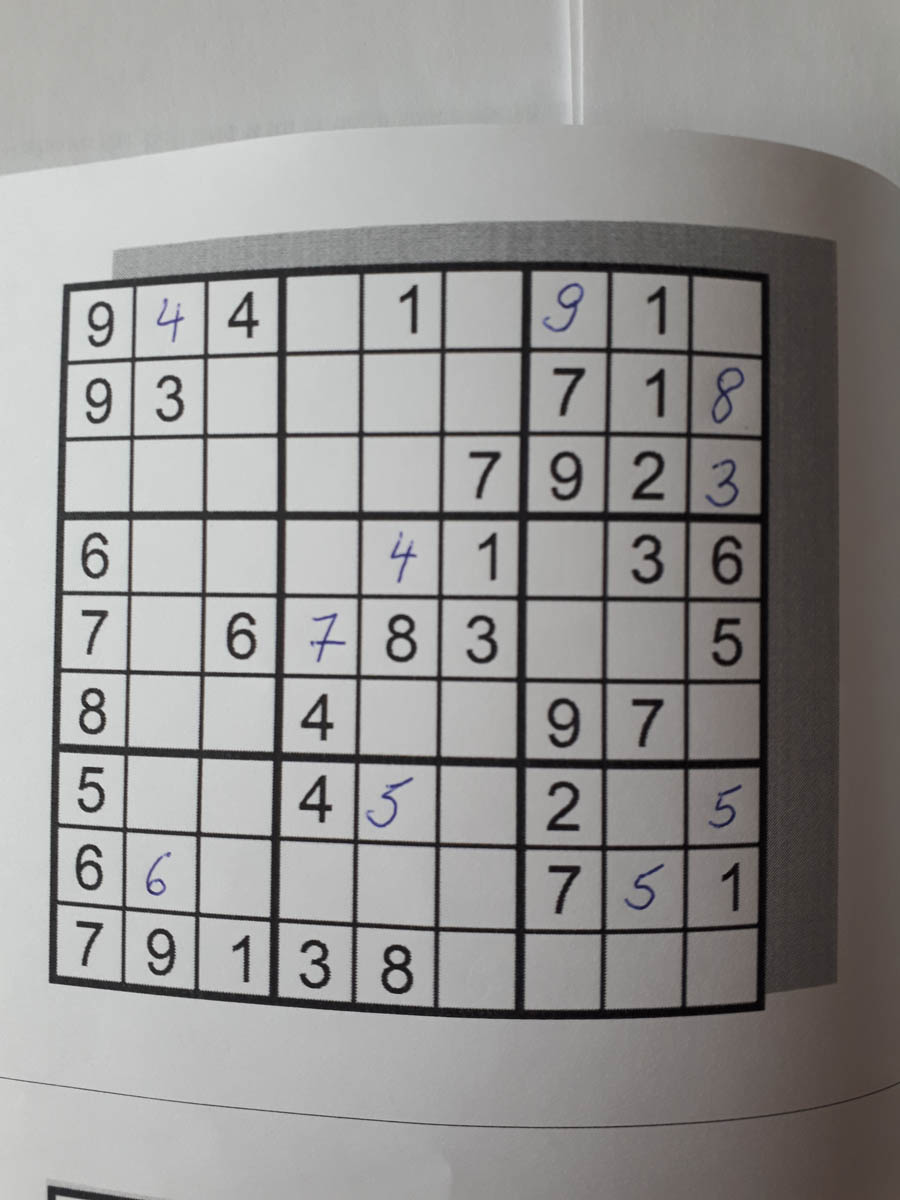 9 4 4 1 9 1
9 3 7 1 8
7 9 2 3
6 4 1 3 6
7 6 7 8 3 5
8 4 9 7
5 4 5 2 5
6 6 7 5 1
7 9 1 3 8